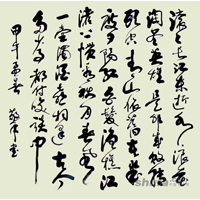 滚々长江东逝水浪花
淘尽英雄是非成败转
头空青山依旧在几
度夕阳红白发渔樵江
渚上惯看秋月春风
一壶浊酒喜相逢古今
多少事都付笑谈中
甲午